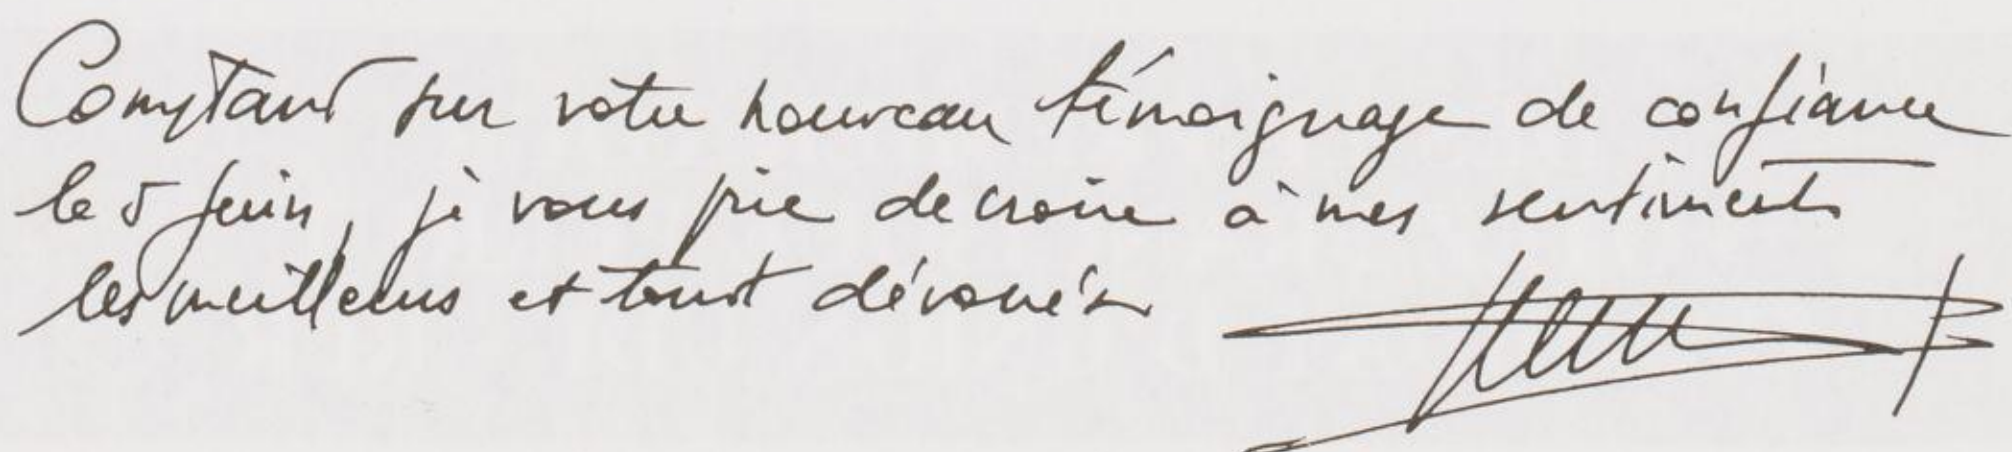 Comptant sur votre nouveau témoignage de confiance
le 5 juin, je vous prie de croire à mes sentiments
les meilleurs et tout dévoués